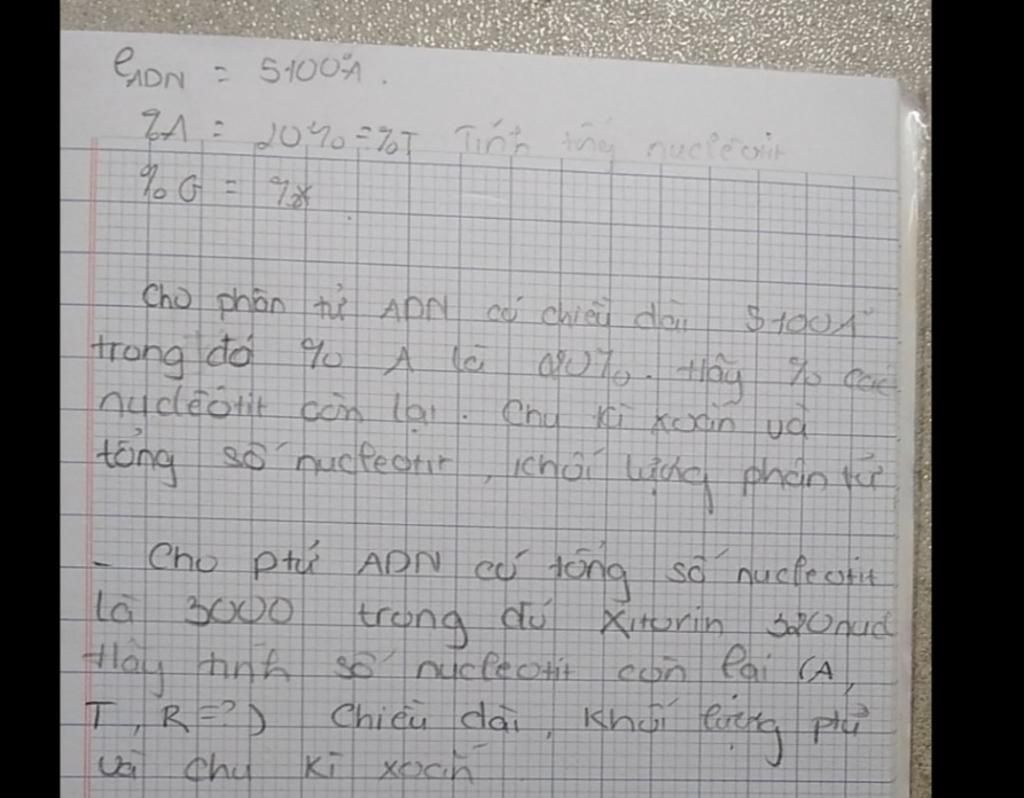 ℓADN = 5100Å.
%A = 20% = %T Tính tổng nucleotit
%G = %X
Cho phân tử ADN có chiều dài 5100A°
trong đó % A là 20%. Hãy % các
nucleotit còn lại. Chu kì xoắn và
tổng số nucleotit, khối lượng phân tử
- Cho ptử ADN có tổng số nucleotit
là 3000 trong đó Xitozin nud
Hãy tính số nucleotit còn lại (A,
T, R=?) Chiều dài, khối lượng ptử
và chu kì xoắn